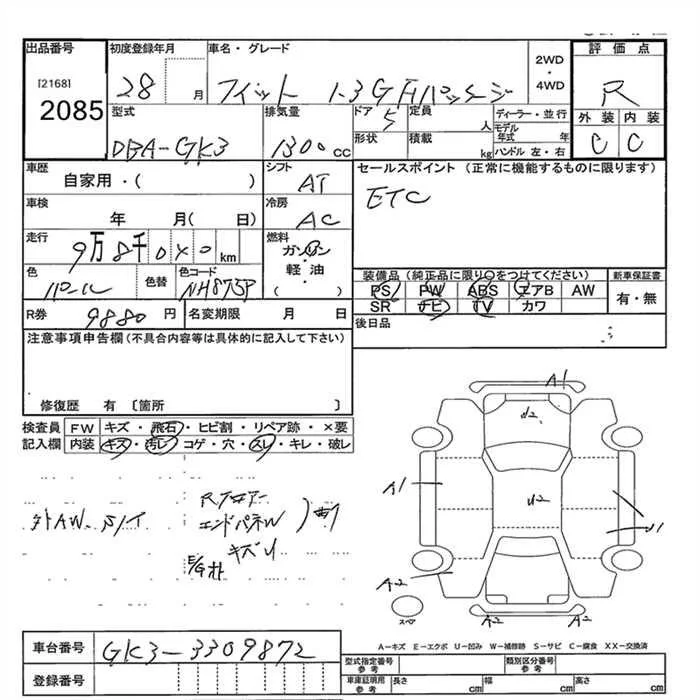 出品番号
[2168]
2085
初度登録年月
28 月
車名・グレード
フィット 1.3G Fパッケージ
2WD・4WD
評価点
R
外装 内装
C C
型式
DBA-GK3
排気量
1300cc
ドア
5
定員
人
形状
積載
kg
ディーラー・並行
モデル年式 年
ハンドル 左・右
車歴
自家用・( )
シフト
AT
セールスポイント(正常に機能するものに限ります)
ETC
車検
年 月( 日)
冷房
AC
走行
9万8千0×0km
燃料
ガソリン
軽・油
・( )
色
パール
色替
色コード
NH875P
装備品(純正品に限り○をつけてください)
PS PW ABS エアB AW
SR ナビ TV カワ
新車保証書
有・無
R券 9880円
名変期限 月 日
後日品
注意事項申告欄(不具合内容等は具体的に記入して下さい)
修復歴 有〔箇所 〕
検査員記入欄
FW キズ・飛石・ヒビ割・リペア跡・×要
内装 キズ・汚レ・コゲ・穴・スレ・キレ・破レ
外AW
Rフロアー
エンドパネル
キズU
A1
d2
U2
A1
U1
A2
A2
A2
スペア
A-キズ E-エクボ U-凹み W-補修跡 S-サビ C-腐食 XX-交換済
車台番号
GK3-3309872
登録番号
型式指定番号 参考
類別区分番号 参考
車庫証明用 参考
長さ cm
幅 cm
高さ cm